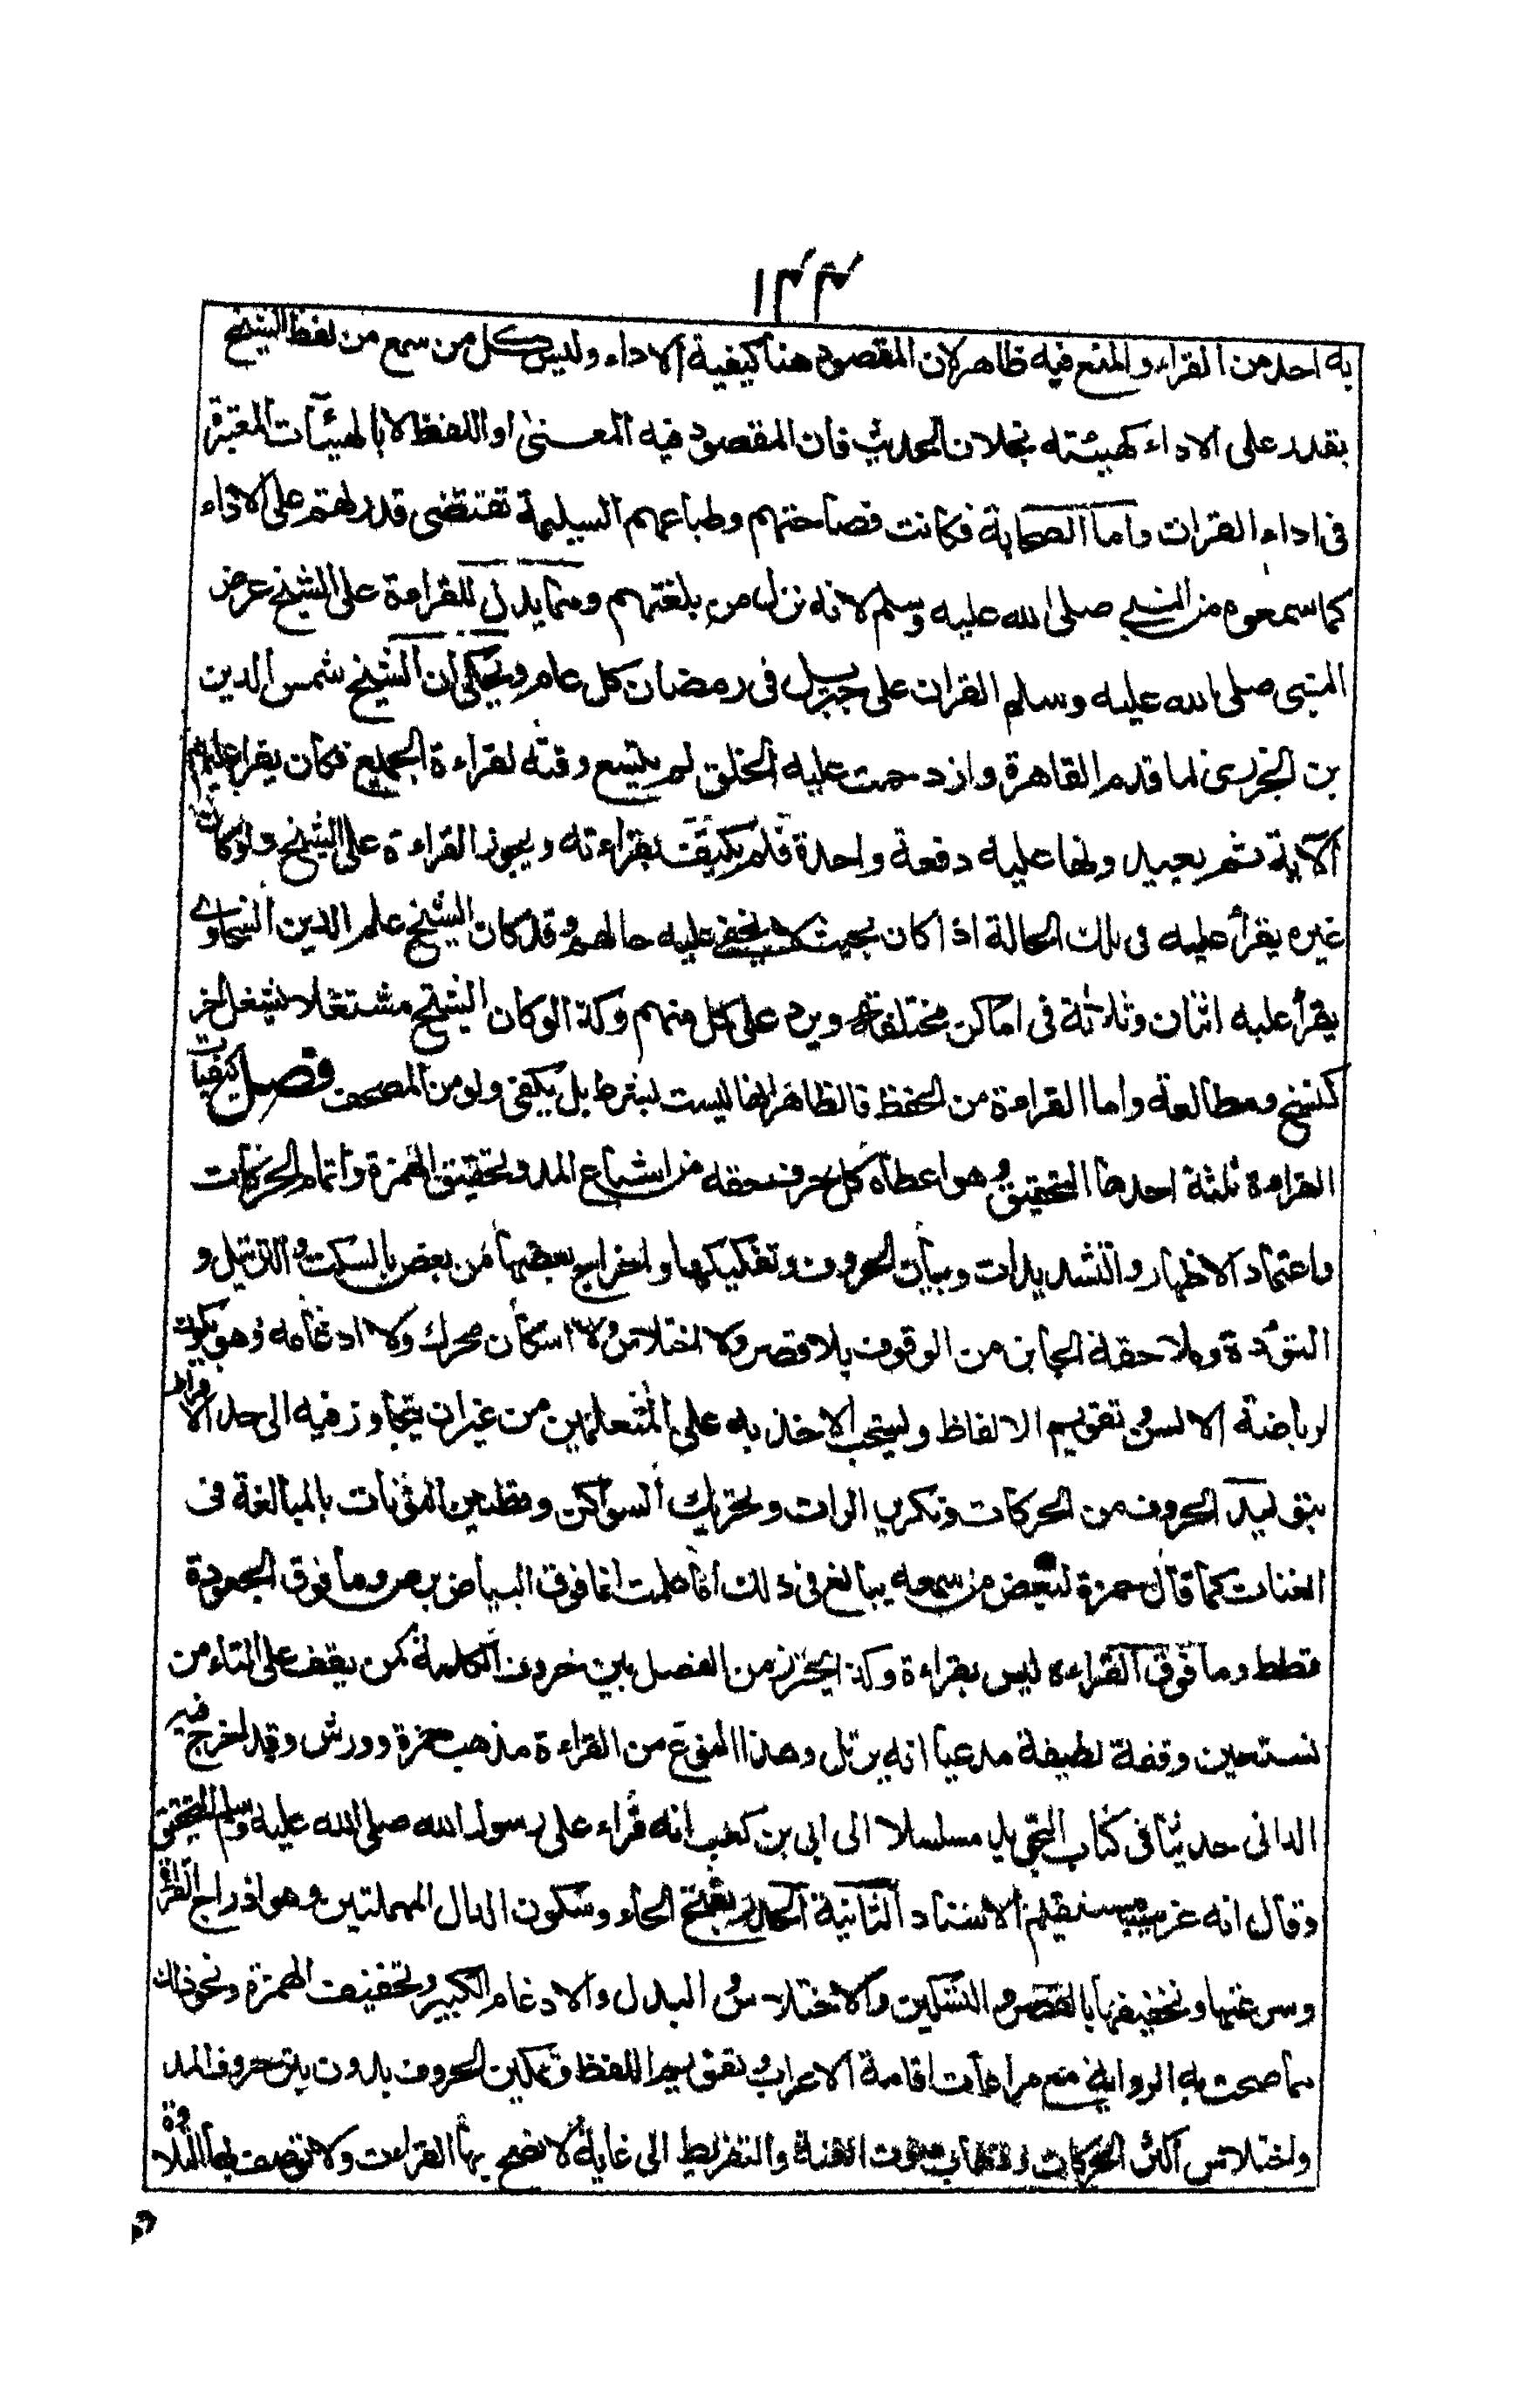 ١٣٣
به احد من القراء والمنع فيه ظاهر لان المقصود هنا كيفية الاداء وليس كل من سمع من لفظ الشيخ
يقدر على الاداء كهيئته بخلاف الحديث فان المقصود فيه المعنى او اللفظ لا بالهيئات المعتبرة
فى اداء القران واما الصحابة فكانت فصاحتهم وطباعهم السليمة تقتضى قدرتهم على الاداء
كما سمعوه من النبى صلى الله عليه وسلم لانه نزل من بلغتهم ومما يدل للقراءة على الشيخ عرض
النبى صلى الله عليه وسلم القران على جبريل فى رمضان كل عام ويحكى ان الشيخ شمس الدين
بن الجزرى لما قدم القاهرة وازدحمت عليه الخلق لم يتسع وقته لقراءة الجميع فكان يقرا عليهم
الآية ثم يعيد ونها عليه دفعة واحدة فلم يكتف بقراءته ويجوز القراءة على الشيخ ولو كان
غيره يقرأ عليه فى تلك الحالة اذا كان بحيث لا يخفى عليه حالهم وقد كان الشيخ علم الدين السخاوى
يقرأ عليه اثنان وثلاثة فى اماكن مختلفة ويرد على كل منهم وكذا لو كان الشيخ مشتغلا بشغل اخر
كنسخ ومطالعة واما القراءة من الحفظ فالظاهر انها ليست بشرط بل يكفى ولو من المصحف فصل كيفيات
القراءة ثلثة احدها التحقيق وهو اعطاء كل حرف حقه من اشباع المد وتحقيق الهمزة واتمام الحركات
واعتماد الاظهار والتشديدات وبيان الحروف وتفكيكها واخراج بعضها من بعض بالسكت والترتيل و
التؤدة وملاحظة الجائز من الوقوف بلا قصر ولا اختلاس ولا اسكان محرك ولا ادغامه وهو يكون
لرياضة الالسن وتقويم الالفاظ ويستحب الاخذ به على المتعلمين من غير ان يتجاوز فيه الى حد الافراط
بتوليد الحروف من الحركات وتكرير الرات وتحريك السواكن وتطنين النونات بالمبالغة فى
الغنات كما قال حمزة لبعض من سمعه يبالغ فى ذلك اما علمت ان ما فوق البياض برص وما فوق الجعودة
قطط وما فوق القراءة ليس بقراءة وكذا يحترز من الفصل بين حروف الكلمة كمن يقف على التاء من
نستعين وقفة لطيفة مدعيا انه يرتل وهذا النوع من القراءة مذهب حمزة وورش وقد اخرج فيه
الدانى حديثا فى كتاب التجويد مسلسلا الى ابى بن كعب انه قراء على رسول الله صلى الله عليه وسلم التحقيق
وقال انه غريب مستقيم الاسناد الثانية الحدر بفتح الحاء وسكون الدال المهملتين وهو ادراج القراءة
وسرعتها وتخفيفها بالقصر والتسكين والاختلاس والبدل والادغام الكبير وتخفيف الهمزة ونحو ذلك
مما صحت به الرواية مع مراعات اقامة الاعراب وتقويم اللفظ وتمكين الحروف بدون بتر حروف المد
واختلاس اكثر الحركات وذهاب صوت الغنة والتفريط الى غاية لا تصح بها القراءت ولا توصف بها التلاوة